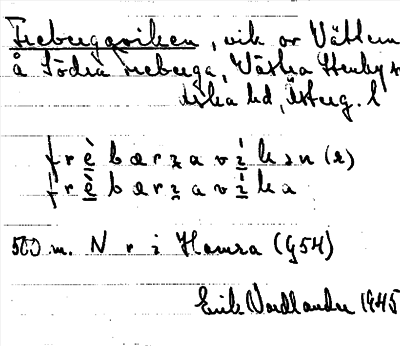 Frebergaviken, vik av Vättern
å Södra Freberga, Västra Stenby s
Aska hd, Österg. l
frὲbærgavíkən (2)
frὲbærgavíka
500 m. N r i Hamra (G54)
Erik Nordlander 1945